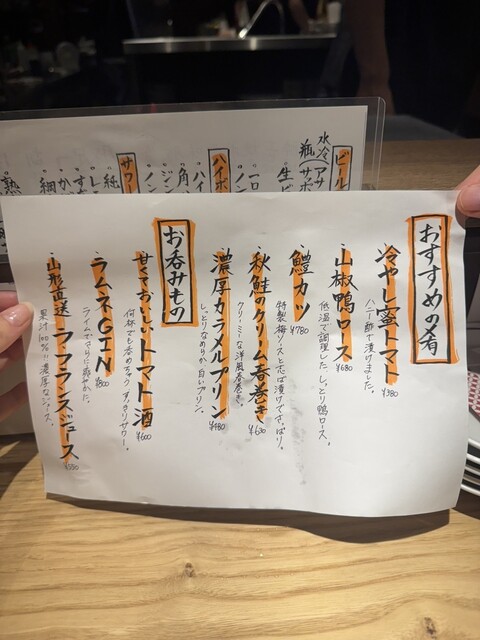 おすすめの肴
冷やし蜜トマト ¥380
ハニー酢で漬けました。
山椒鴨ロース ¥680
低温で調理した、しっとり鴨ロース。
鱧カツ ¥780
特製梅ソースと芯ば漬けでさっぱり。
秋鮭のクリーム春巻き ¥630
クリーミーな洋風春巻き。
濃厚カラメルプリン ¥480
しっとりなめらか白いプリン。
お呑みもの
甘くておいしいトマト酒 ¥600
何杯でも呑めちゃうすっきりサワー。
ラムネGIN ¥800
ライムでさらに爽やかに。
山形直送ラ・フランスジュース ¥550
果汁100%!!濃厚なジュース。
ビール
水冷(アサ
瓶(サッポ
生ビ
ハイボ
ハイ
角ハ
ジン
ノン
サワー
純
レモ
かつ
細
熟